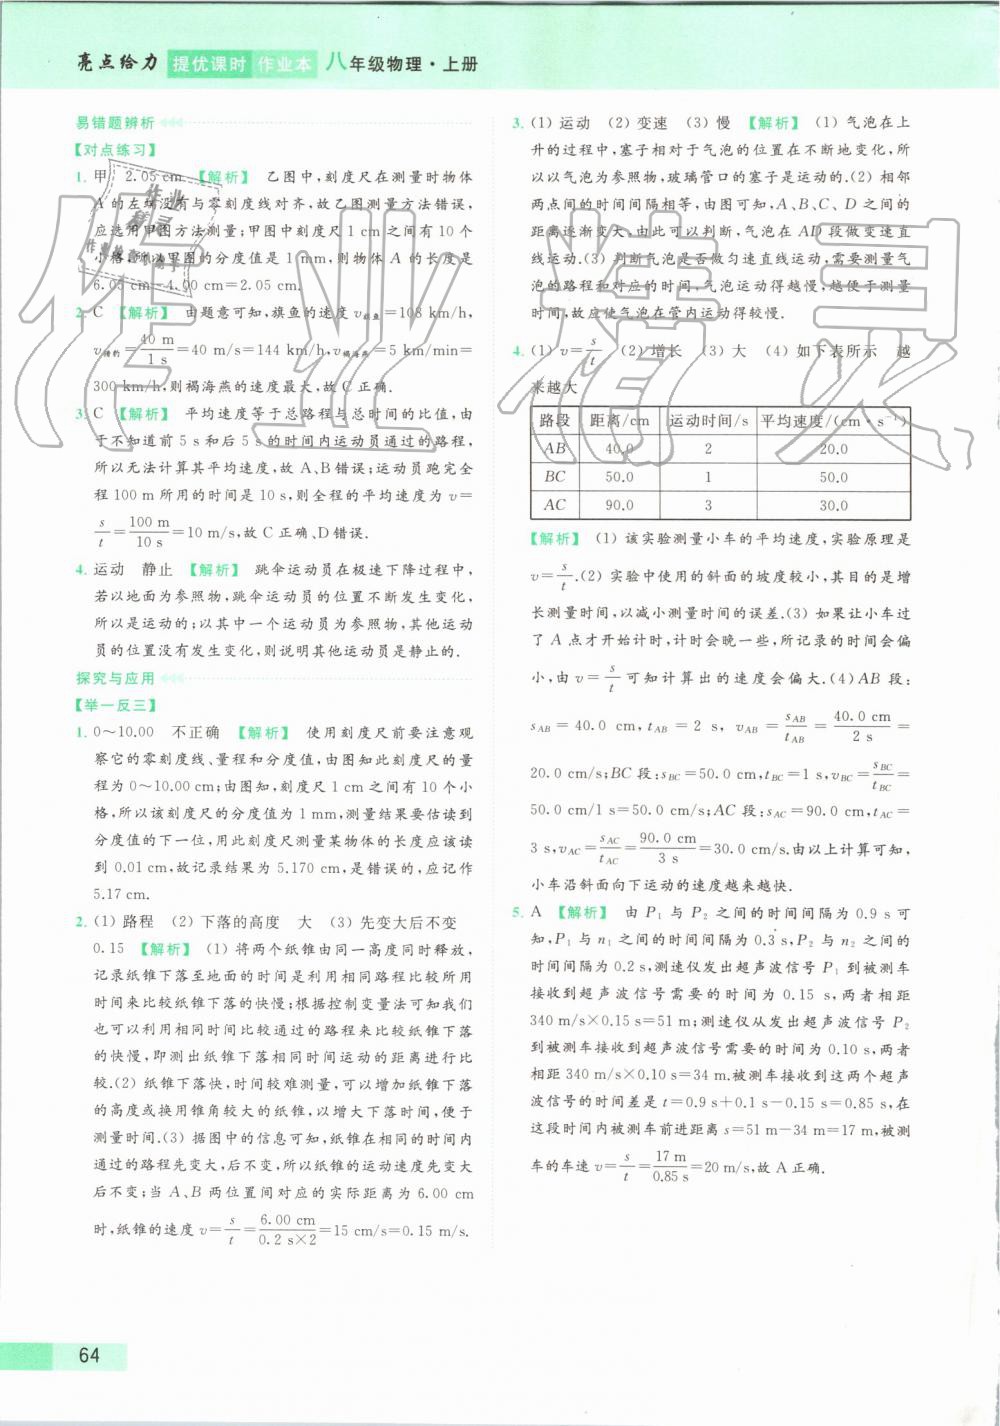 亮点给力 提优课时 作业本 八年级物理·上册
易错题辨析
【对点练习】
1. 甲 2.05 cm 【解析】 乙图中,刻度尺在测量时物体
A 的左端没有与零刻度线对齐,故乙图测量方法错误,
应选用甲图方法测量;甲图中刻度尺 1 cm 之间有 10 个
小格,所以甲图的分度值是 1 mm,则物体 A 的长度是
6.05 cm-4.00 cm=2.05 cm.
2. C 【解析】 由题意可知,旗鱼的速度 v旗鱼=108 km/h,
v猎豹=40 m/1 s=40 m/s=144 km/h,v褐海燕=5 km/min=
300 km/h,则褐海燕的速度最大,故 C 正确.
3. C 【解析】 平均速度等于总路程与总时间的比值,由
于不知道前 5 s 和后 5 s 的时间内运动员通过的路程,
所以无法计算其平均速度,故 A、B 错误;运动员跑完全
程 100 m 所用的时间是 10 s,则全程的平均速度为 v=
s/t=100 m/10 s=10 m/s,故 C 正确、D 错误.
4. 运动 静止 【解析】 跳伞运动员在极速下降过程中,
若以地面为参照物,跳伞运动员的位置不断发生变化,
所以是运动的;以其中一个运动员为参照物,其他运动
员的位置没有发生变化,则说明其他运动员是静止的.
探究与应用
【举一反三】
1. 0～10.00 不正确 【解析】 使用刻度尺前要注意观
察它的零刻度线、量程和分度值,由图知此刻度尺的量
程为 0～10.00 cm;由图知,刻度尺 1 cm 之间有 10 个小
格,所以该刻度尺的分度值为 1 mm,测量结果要估读到
分度值的下一位,用此刻度尺测量某物体的长度应该读
到 0.01 cm,故记录结果为 5.170 cm,是错误的,应记作
5.17 cm.
2. (1) 路程 (2) 下落的高度 大 (3) 先变大后不变
0.15 【解析】 (1) 将两个纸锥由同一高度同时释放,
记录纸锥下落至地面的时间是利用相同路程比较所用
时间来比较纸锥下落的快慢;根据控制变量法可知我们
也可以利用相同时间比较通过的路程来比较纸锥下落
的快慢,即测出纸锥下落相同时间运动的距离进行比
较.(2) 纸锥下落快,时间较难测量,可以增加纸锥下落
的高度或换用锥角较大的纸锥,以增大下落时间,便于
测量时间.(3) 据图中的信息可知,纸锥在相同的时间内
通过的路程先变大,后不变,所以纸锥的运动速度先变大
后不变;当 A、B 两位置间对应的实际距离为 6.00 cm
时,纸锥的速度 v=s/t=6.00 cm/0.2 s×2=15 cm/s=0.15 m/s.
3. (1) 运动 (2) 变速 (3) 慢 【解析】 (1) 气泡在上
升的过程中,塞子相对于气泡的位置在不断地变化,所
以以气泡为参照物,玻璃管口的塞子是运动的.(2) 相邻
两点间的时间间隔相等,由图可知,A、B、C、D 之间的
距离逐渐变大,由此可以判断,气泡在 AD 段做变速直
线运动.(3) 判断气泡是否做匀速直线运动,需要测量气
泡的路程和对应的时间,气泡运动得越慢,越便于测量
时间,故应使气泡在管内运动得较慢.
4. (1) v=s/t (2) 增长 (3) 大 (4) 如下表所示 越
来越大
路段 距离/cm 运动时间/s 平均速度/(cm·s⁻¹)
AB 40.0 2 20.0
BC 50.0 1 50.0
AC 90.0 3 30.0
【解析】 (1) 该实验测量小车的平均速度,实验原理是
v=s/t.(2) 实验中使用的斜面的坡度较小,其目的是增
长测量时间,以减小测量时间的误差.(3) 如果让小车过
了 A 点才开始计时,计时会晚一些,所记录的时间会偏
小,由 v=s/t 可知计算出的速度会偏大.(4) AB 段:
sAB=40.0 cm,tAB=2 s,vAB=sAB/tAB=40.0 cm/2 s=
20.0 cm/s;BC 段:sBC=50.0 cm,tBC=1 s,vBC=sBC/tBC=
50.0 cm/1 s=50.0 cm/s;AC 段:sAC=90.0 cm,tAC=
3 s,vAC=sAC/tAC=90.0 cm/3 s=30.0 cm/s.由以上计算可知,
小车沿斜面向下运动的速度越来越快.
5. A 【解析】 由 P₁ 与 P₂ 之间的时间间隔为 0.9 s 可
知,P₁ 与 n₁ 之间的时间间隔为 0.3 s,P₂ 与 n₂ 之间的
时间间隔为 0.2 s,测速仪发出超声波信号 P₁ 到被测车
接收到超声波信号需要的时间为 0.15 s,两者相距
340 m/s×0.15 s=51 m;测速仪从发出超声波信号 P₂
到被测车接收到超声波信号需要的时间为 0.10 s,两者
相距 340 m/s×0.10 s=34 m.被测车接收到这两个超声
波信号的时间差是 t=0.9 s+0.1 s-0.15 s=0.85 s,在
这段时间内被测车前进距离 s=51 m-34 m=17 m,被测
车的车速 v=s/t=17 m/0.85 s=20 m/s,故 A 正确.
64
作业精灵